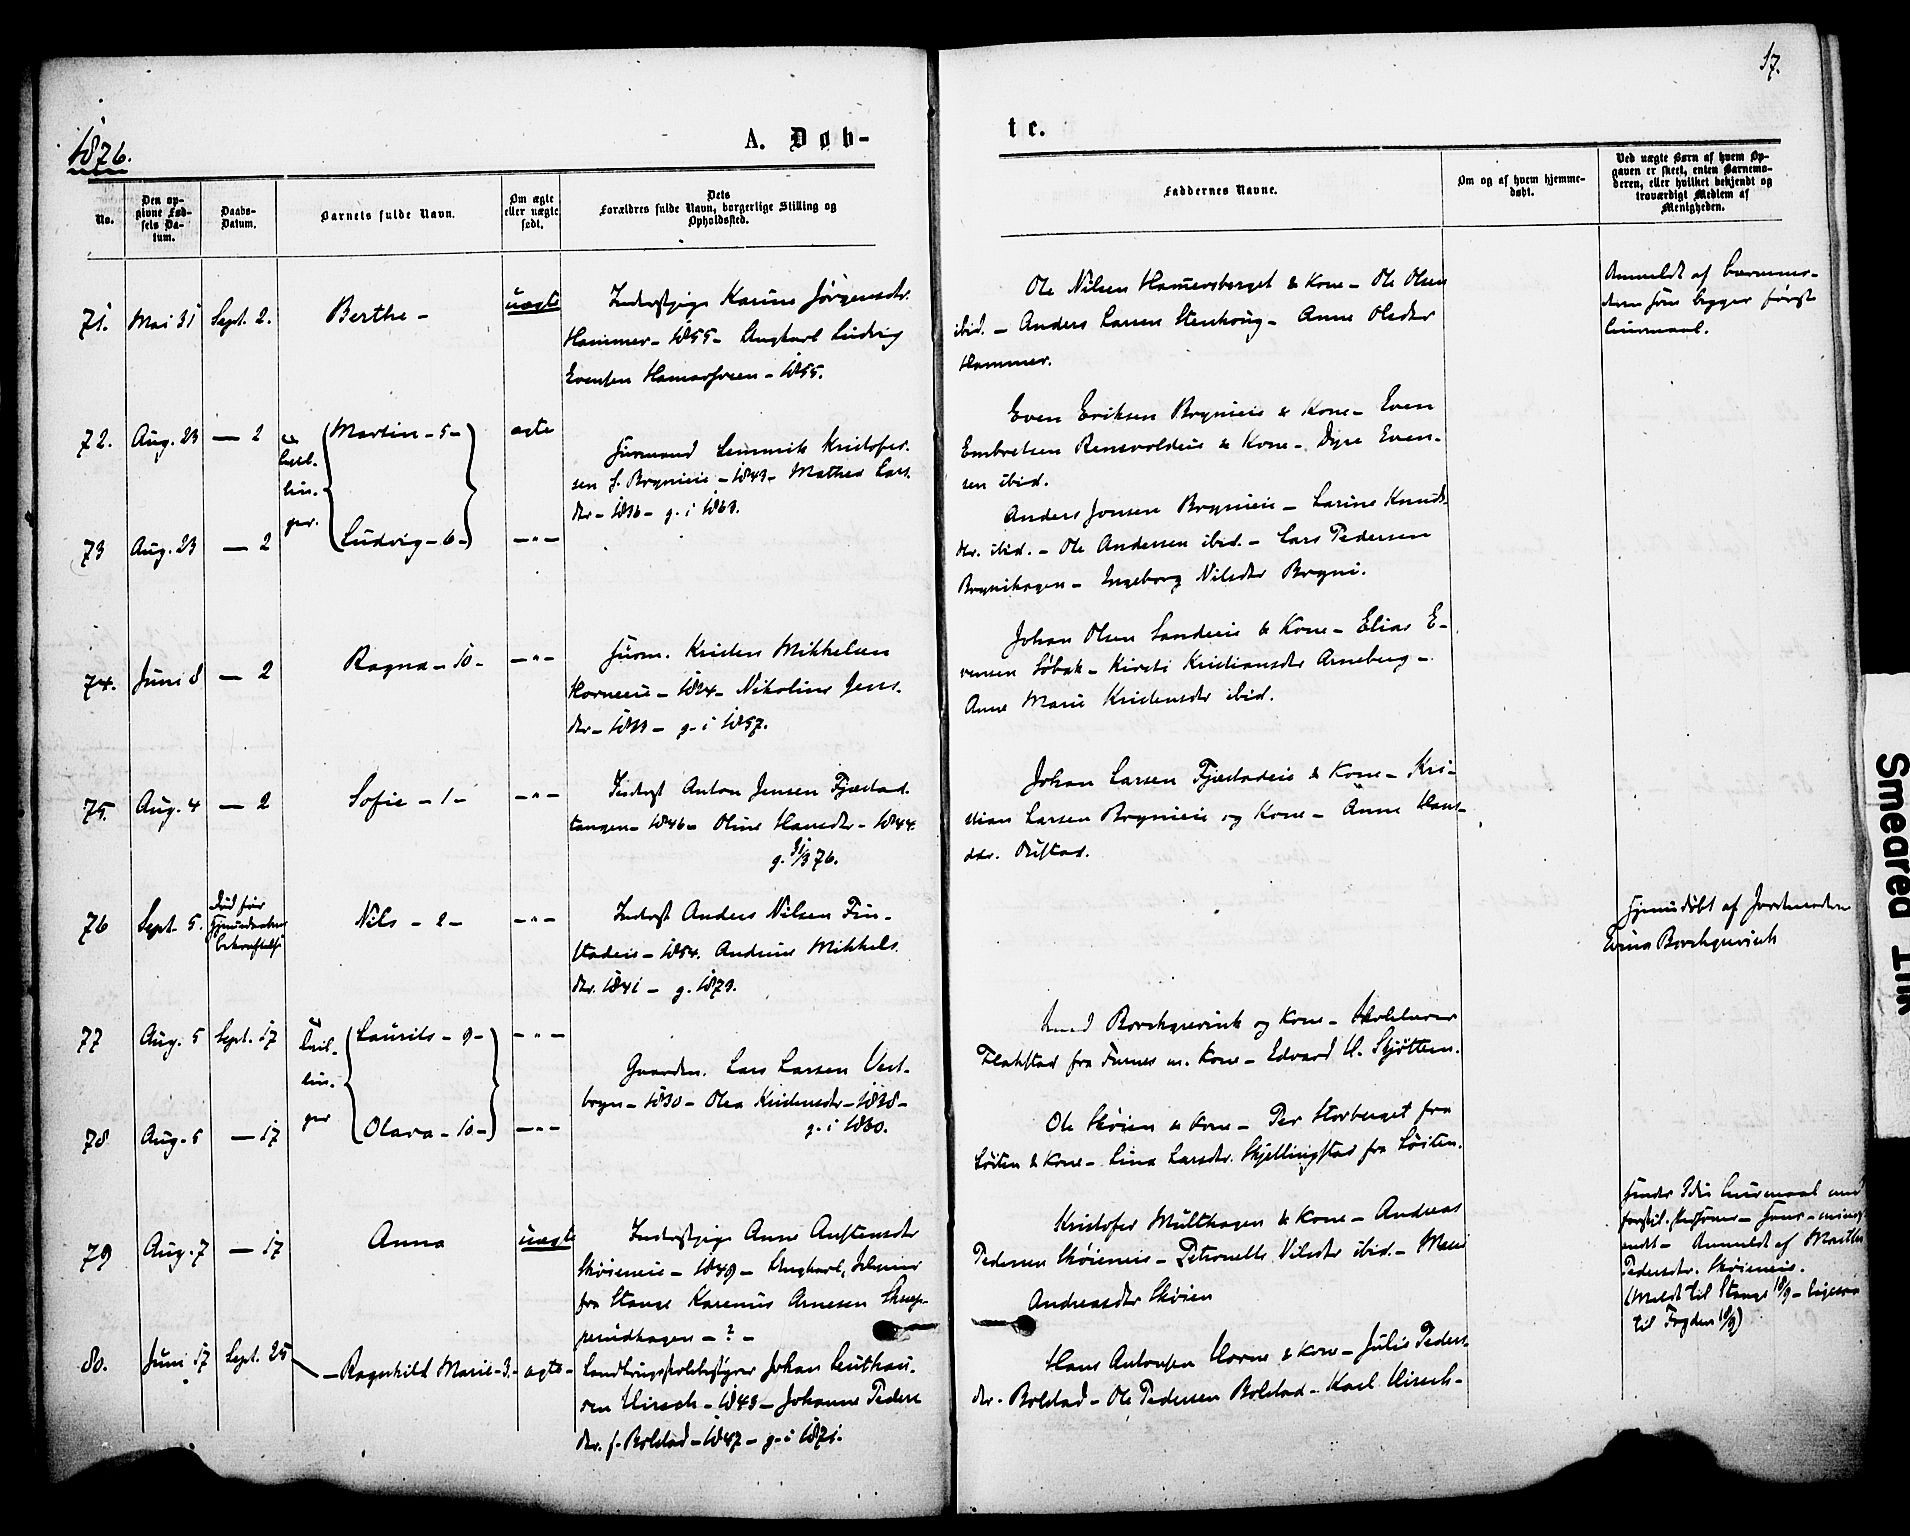 17.
1876.
A. Døb-
te.
No.
Den op-
givne Fød-
sels Da-
tum.
Daabs-
Datum.
Barnets fulde Navn.
Om ægte
eller uægte
født.
Dets
Forældres fulde Navn, borgerlige Stilling og
Opholdssted.
Faddernes Navne.
Om og af hvem hjemme-
døbt.
Ved uægte Børn af hvem Op-
gaven er skeet, enten Barnemo-
deren, eller hvilket bekjendt og
troværdigt Medlem af
Menigheden.
71. Mai 31 Sept. 2. Berthe - uægte
Inderstpige Karine Jørgensdtr.
Hammer - 1855 - Ungkarl Ludvig
Evensen Hamar - 1855.
Ole Nilsen Hamersberget & Kone - Ole Olsen
ibid. - Anders Larsen Stenhoug - Anne Olsdtr
Hammer.
Anmeldt af Barnemo-
deren første
leiermaal.
72. Aug. 23 - 2 Martin - 5 - ægte
73 Aug. 23 - 2 Ludvig - 6 - - " -
Kristofer-
sen f. Brynieie - 1843 - Mathea Lars-
dtr - 1836 - g. i 1863.
Even Eriksen Brynieie & Kone - Even
Embretsen Rensvoldeie & Kone - Dyre Even-
sen ibid.
Anders Jonsen Brynieie - Karine Knuds-
dtr. ibid. - Ole Andersen ibid. - Lars Pedersen
Brynihagen - Ingeborg Nilsdtr Bryni.
74. Juni 8 - 2 Ragna - 10 - - " -
Husm. Kristen Mikkelsen
Horneeie - 1834 - Nikoline Jens-
dtr - 1833 - g. i 1857.
Johan Olsen Sandeeie & Kone - Elias E-
vensen Søbak - Kirsti Kristiansdtr Arneberg -
Anne Marie Kristensdtr ibid.
75. Aug. 4 - 2 Sofie - 1 - - " -
Inderst Anton Jensen Fjæstad-
tangen - 1846 - Oline Hansdtr - 1844.
g. 31/3 76.
Johan Larsen Fjæstadeie & Kone - Kri-
stian Larsen Brynieie og Kone - Anne Hans-
dtr.
76 Sept. 5. Død før
Hjemmedaabens
bekræftelse
Nils - 2 - - " -
Inderst Anders Nilsen Fin-
stadeie - 1854. Andrine Mikkels-
dtr. 1841 - g. 1873.
Hjemmedøbt af Jordmoderen
Borchgrevink
77 Aug. 5 Sept. 17 Tvil-
lin-
ger
Laurits - 9 - - " -
78 Aug. 5 - 17 Olava - 10 - - " -
Gaardm. Lars Larsen Vest-
bryn - 1830 - Olea Kristensdtr - 1838 -
g. i 1860.
Borchgrevink og Kone -
Flakstad fra Furnes m. Kone - Edvard H. Skjøtten.
Ole Skøien & Kone - Per Storberget fra
Løiten & Kone - Lina Larsdtr. Skjellingstad fra Løiten.
79 Aug. 7 - 17 Anna uægte
Inderstpige Anne Austensdtr
Skøieneie - 1849 - Ungkarl,
fra Stange Karenius Arnesen
- ? -
Kristofer Multhagen & Kone - Andreas
Pedersen Skøieneie - Petronelle Nilsdtr ibid. - Mari
Andreasdtr Skøien
leiermaal
Anmeldt af Marthe
Pedersdtr. Skøieneie.
(Meldt til Stange 18/9 - ligesaa
til Fogden 18/9)
80. Juni 17 Sept. 25 - Ragnhild Marie - 3 - ægte -
Landbrugsskolebestyrer Johan Leuthäu-
sen Hirsch - 1843 - Johanne Peders-
dtr. f. Bolstad - 1847 - g. i 1871.
Hans Antonsen Horne & Kone - Julie Peders-
dtr. Bolstad - Ole Pedersen Bolstad - Karl Hirsch -
Smeared Ink